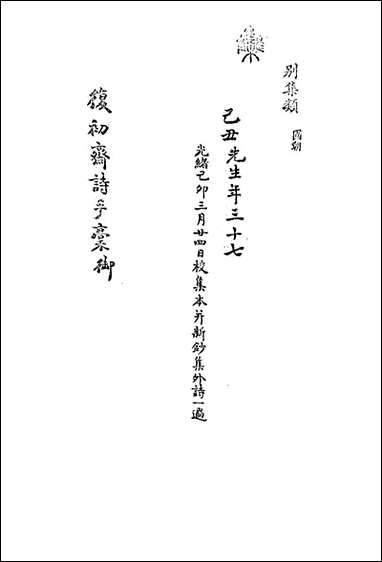 別集類 國朝
己丑先生年三十七
光緒己卯三月廿四日校集本并新鈔集外詩一過
復初齋詩手稾御